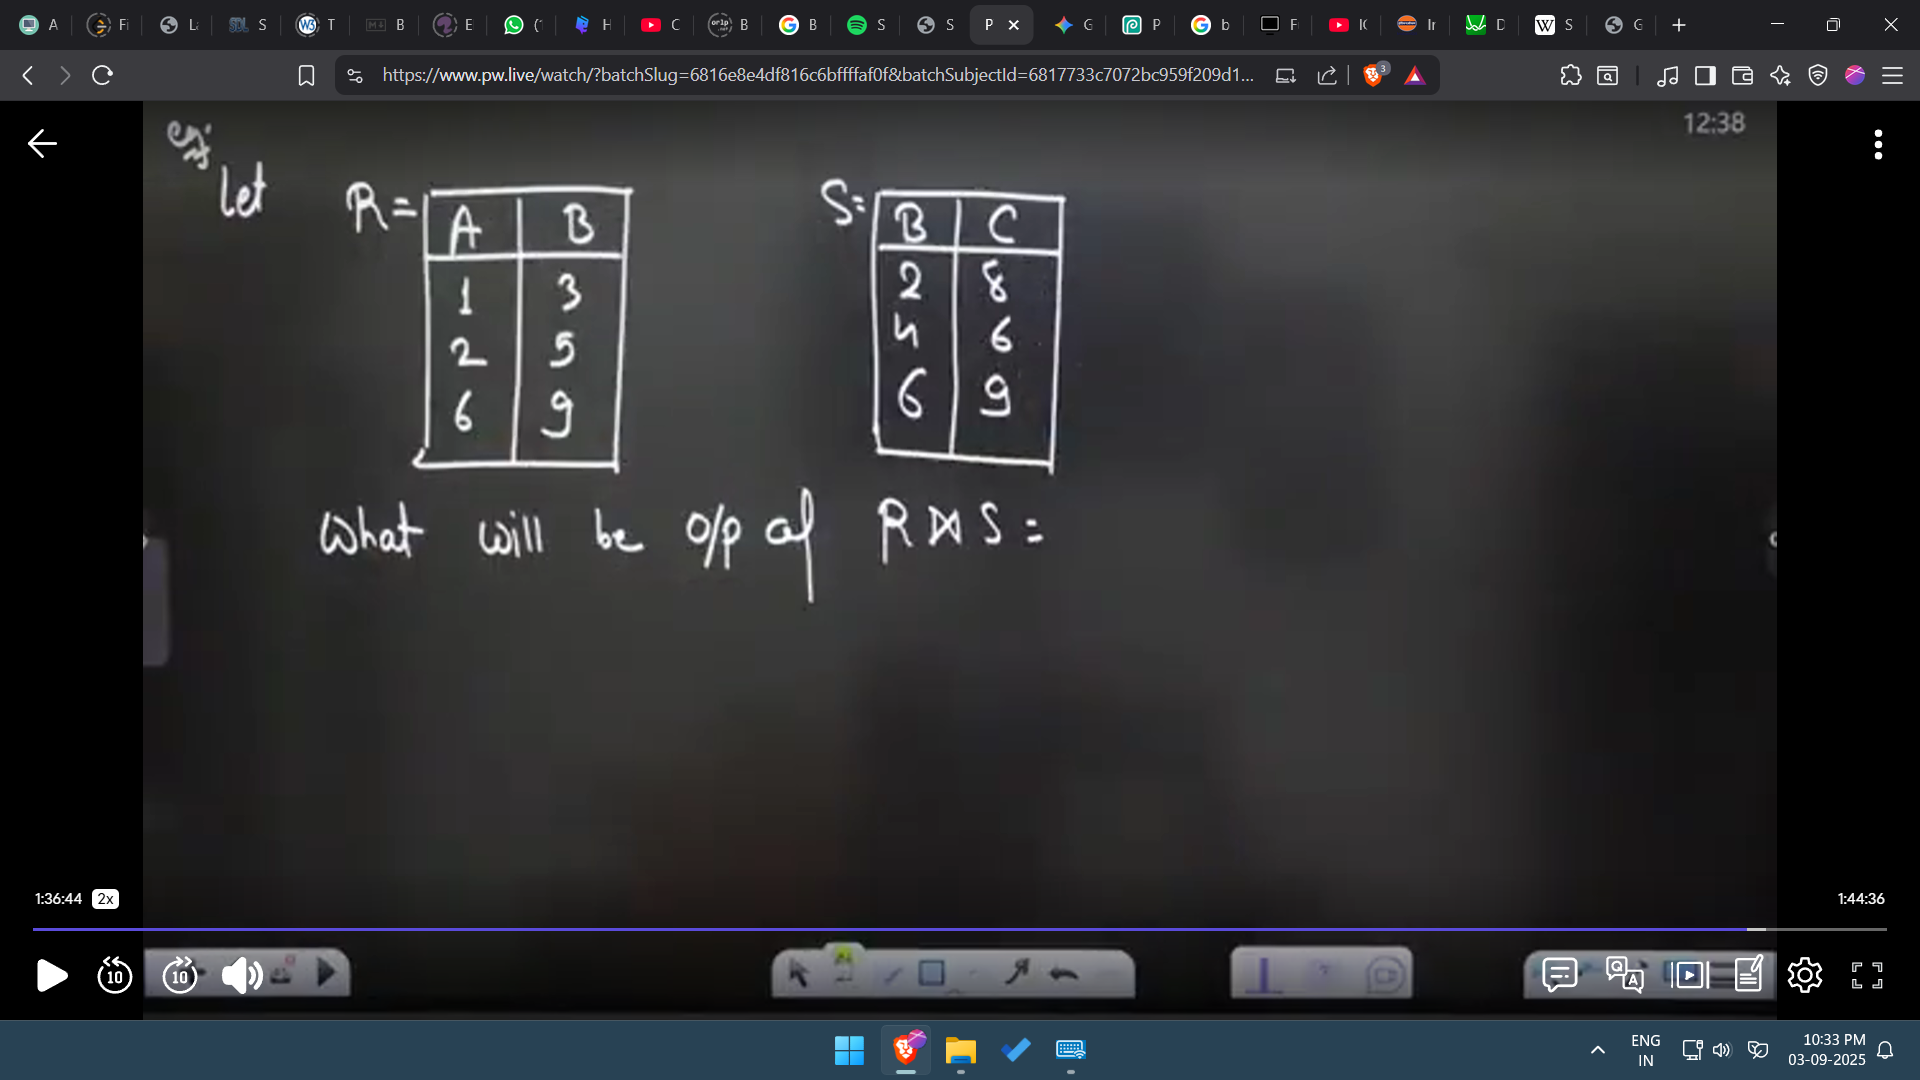 A
Fi
L
SQL S
W3 T
B
E
(
H
C
B
B
S
S
P
G
P
b
F
I(
Ir
D
S
G
https://www.pw.live/watch/?batchSlug=6816e8e4df816c6bffffaf0f&batchSubjectId=6817733c7072bc959f209d1...
3
12:38
eg:
Let R= S=
A B
1 3
2 5
6 9
B C
2 8
4 6
6 9
What will be o/p of R ⋈ S =
1:36:44 2x
1:44:36
10 10
ENG
IN
10:33 PM
03-09-2025